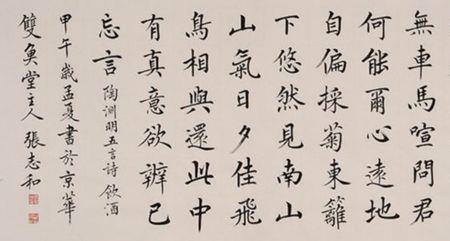 無車馬喧問君
何能爾心遠地
自偏採菊東籬
下悠然見南山
山氣日夕佳飛
鳥相與還此中
有真意欲辨已
忘言 陶淵明五言詩 飲酒
甲午歲孟夏書於京華
雙魚堂主人 張志和